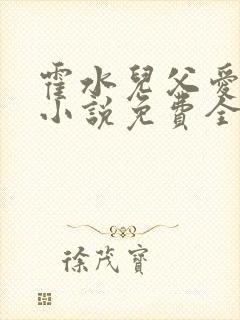 霍水兒父愛
小説免費全
徐茂寶